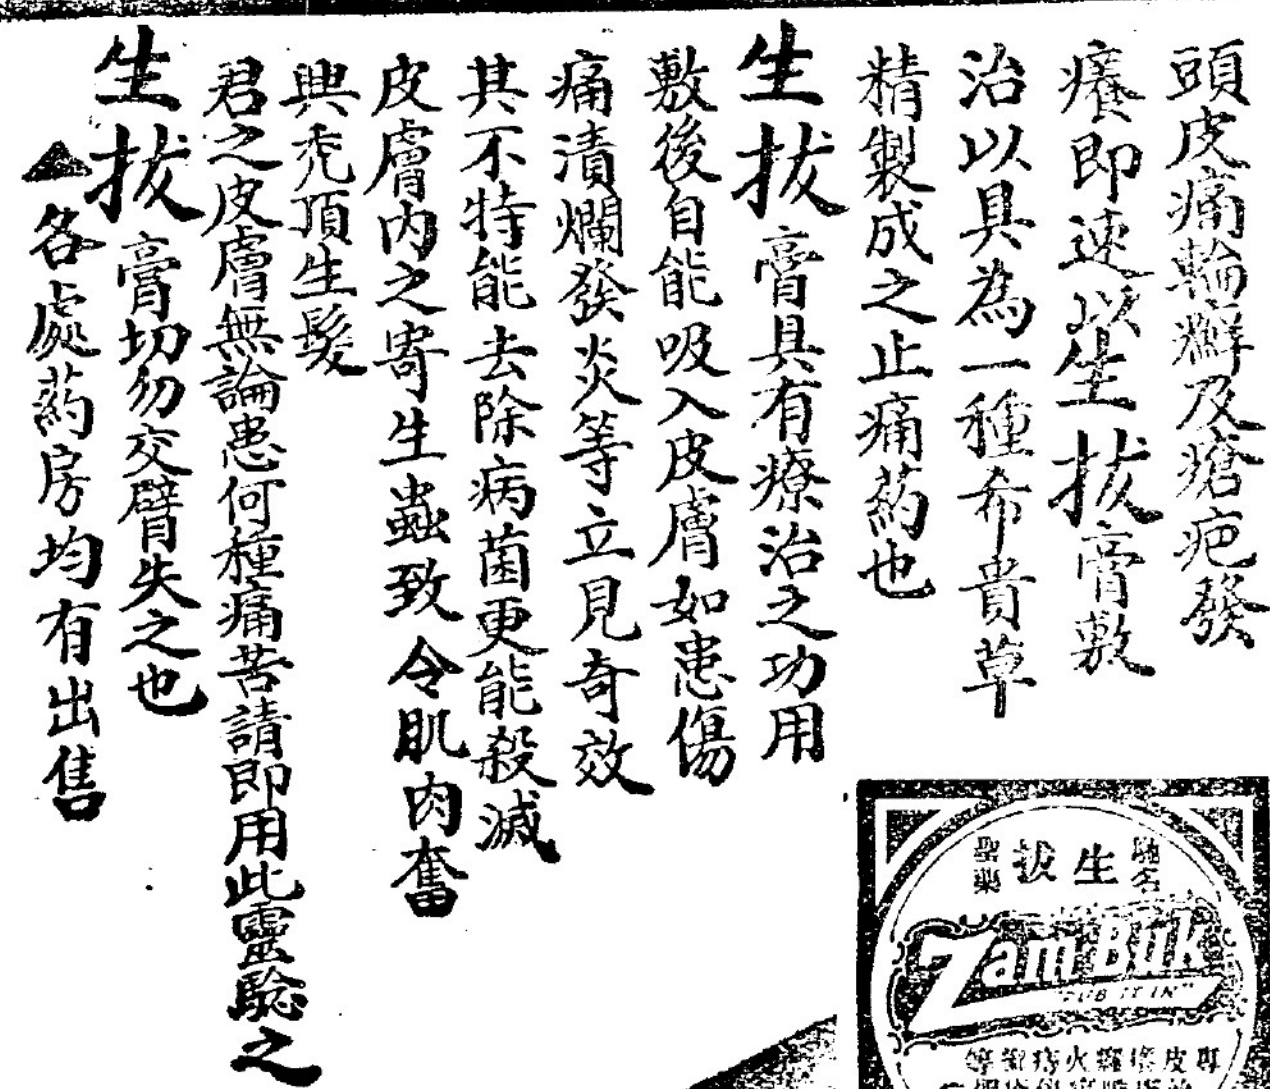 頭皮痛輪癬及瘡疤發
癢即速以生拔膏敷
治以具為一種希貴草
精製成之止痛葯也
生拔膏具有療治之功用
敷後自能吸入皮膚如患傷
痛潰爛發炎等立見奇效
其不特能去除病菌更能殺滅
皮膚內之寄生蟲致令肌肉奮
興禿頂生髮
君之皮膚無論患何種痛苦請即用此靈驗之
生拔膏切勿交臂失之也
▲各處葯房均有出售
馳名
生拔
聖藥
Zam-Buk
"RUB IT IN"
專皮